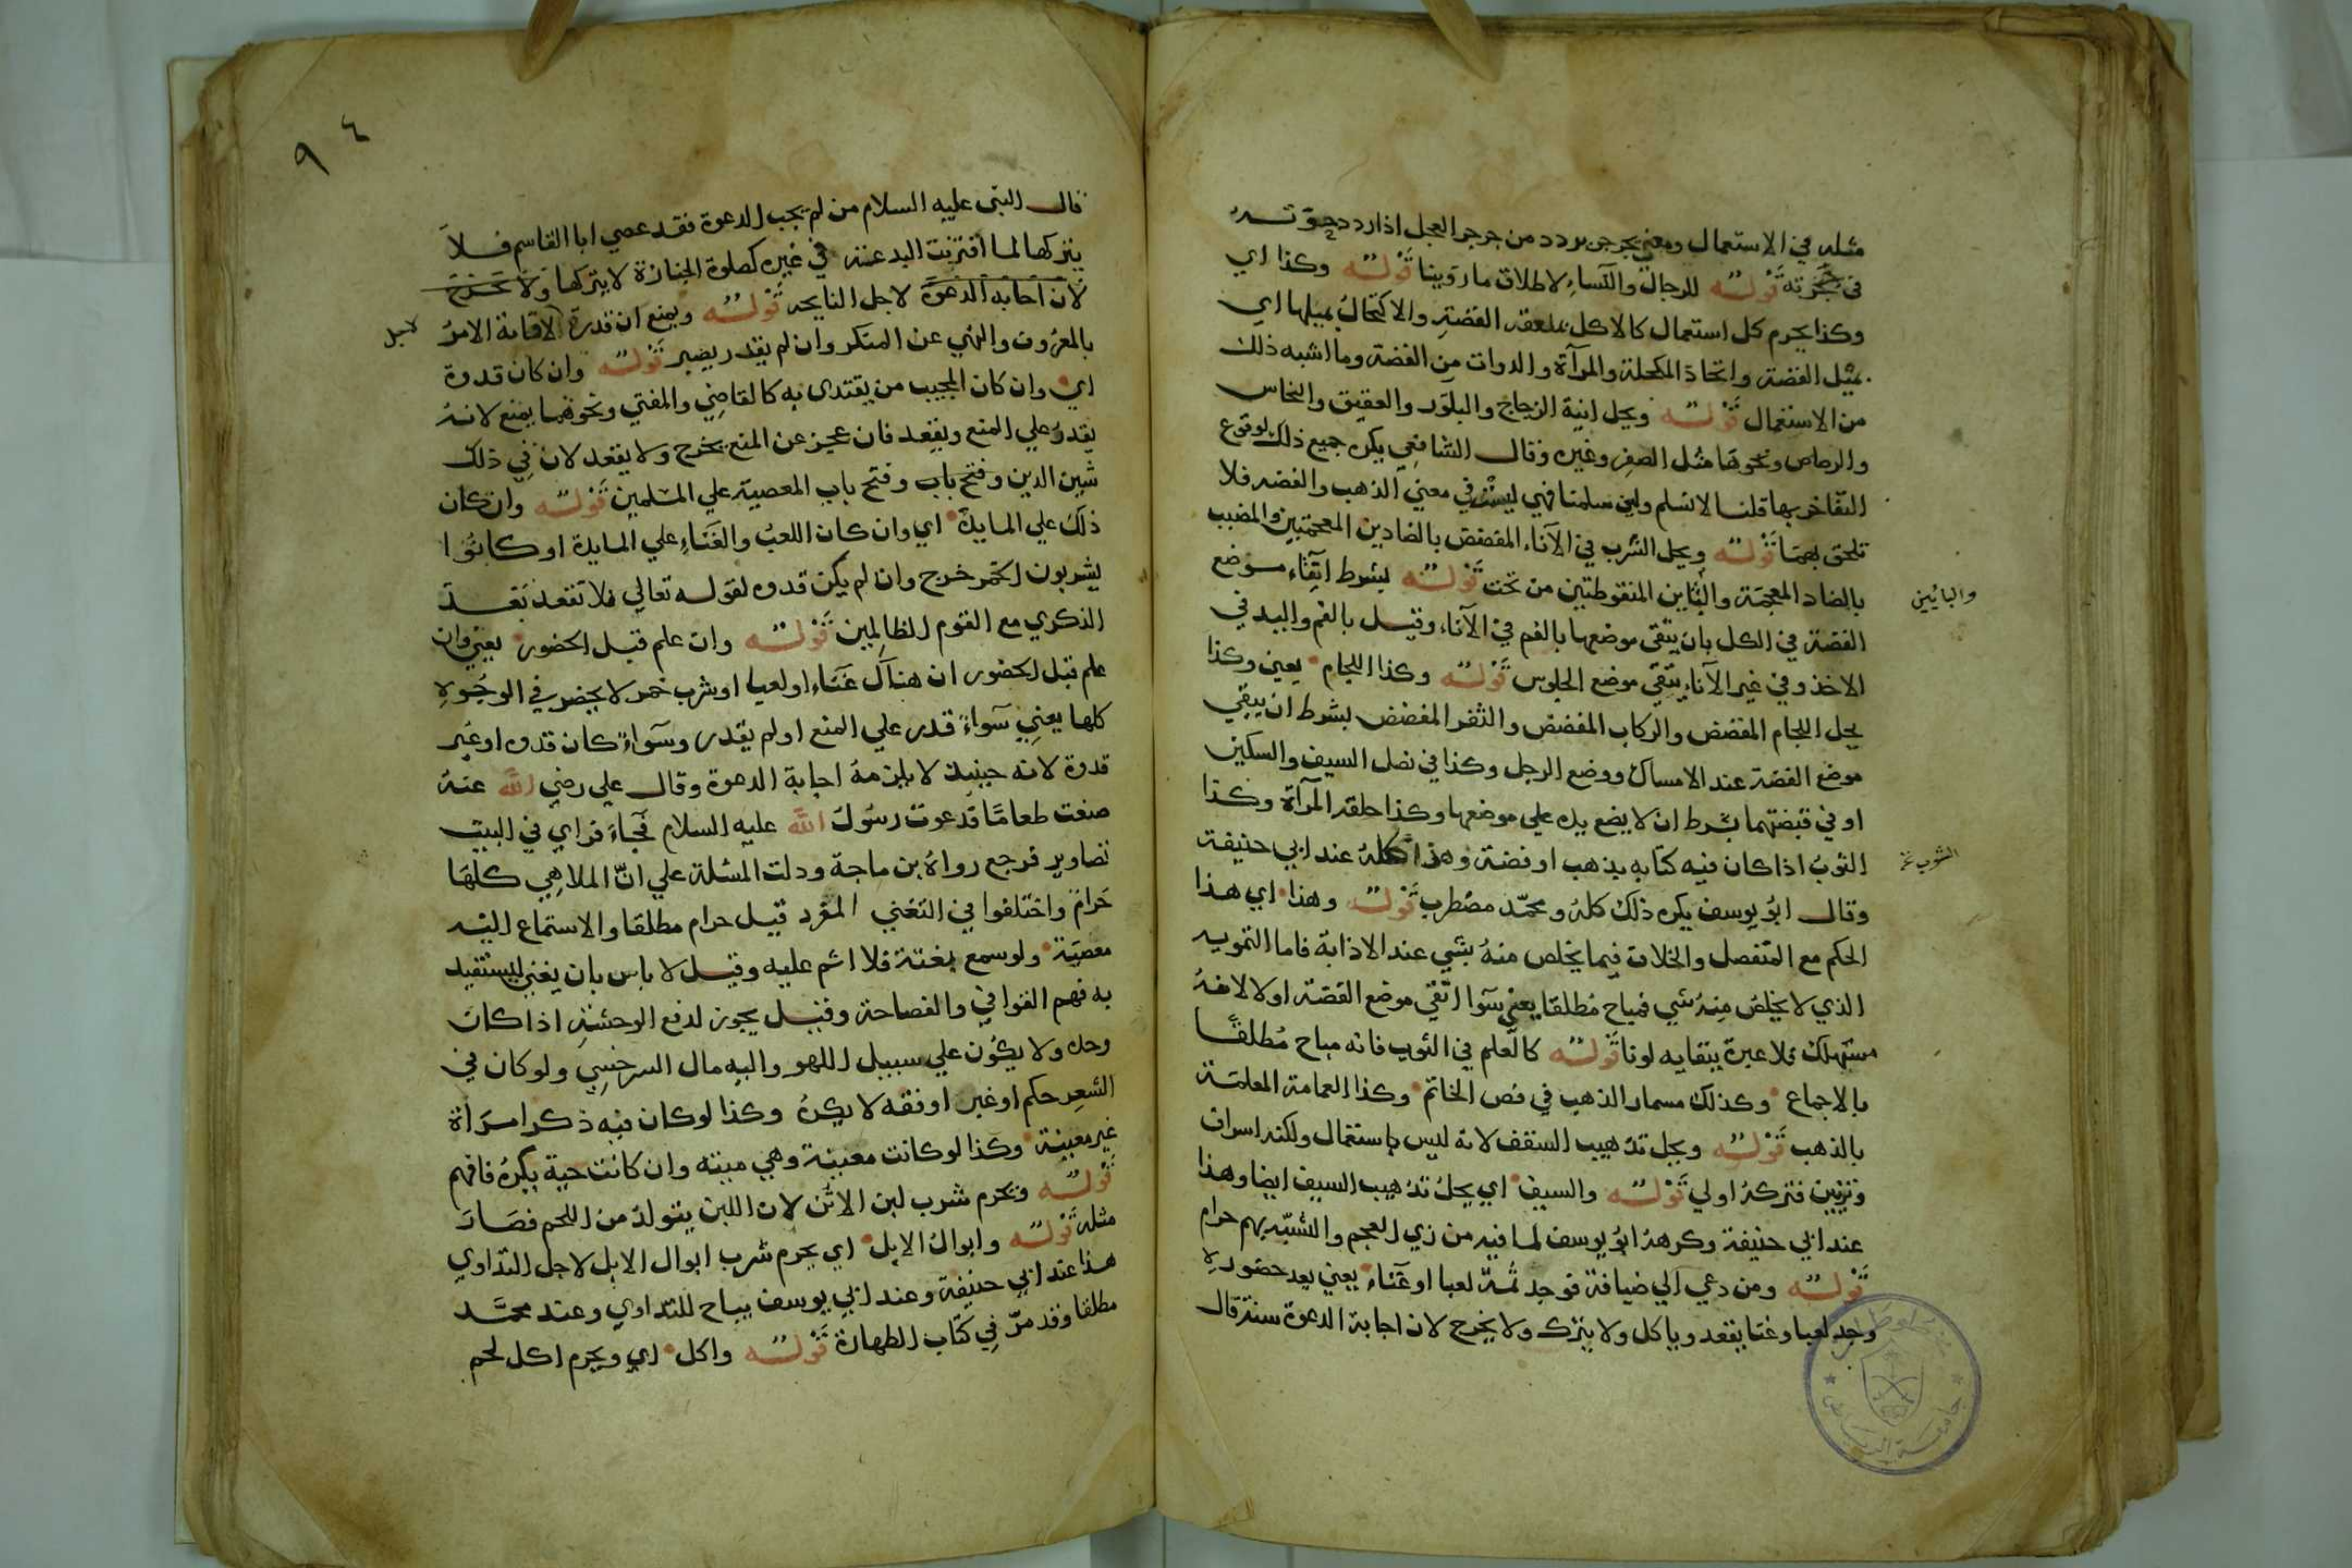 مثله في الاستعمال ومعني يجرجر يردد من جرجر العجل اذا ردد صوته
في حنجرته قوله للرجال والنساء لاطلاق ما روينا قوله وكذا اي
وكذا يحرم كل استعمال كالاكل بملعقه الفضة والاكتحال بميلها اي
بميل الفضة واتخاذ المكحلة والمرآة والدوات من الفضة وما اشبه ذلك
من الاستعمال قوله ويحل انية الزجاج والبلور والعقيق والنحاس
والرصاص ونحوها مثل الصفر وغيره وقال الشافعي يكره جميع ذلك لوقوع
التفاخر بها قلنا لا نسلم ولين سلمنا فهي ليست في معني الذهب والفضه فلا
تلحق بهما قوله ويحل الشرب في الآناء المفضض بالضادين المعجمتين والمضبب
بالضاد المعجمة والبائين المنقوطتين من تحت قوله بشرط اتقاء موضع
والبائيين
الفضة في الكل بان يتقي موضعها بالفم في الآناء وقيل بالفم واليد في
الاخذ وفي غير الآناء يتقي موضع الجلوس قوله وكذا اللجام يعني وكذا
يحل اللجام المفضض والركاب المفضض والثفر المفضض بشرط ان يتقي
موضع الفضة عند الامساك ووضع الرجل وكذا في نصل السيف والسكين
او في قبضتهما بشرط ان لا يضع يده علي موضعها وكذا حلقه المرآة وكذا
الثوب اذا كان فيه كتابه بذهب او فضة وهذا كله عند ابي حنيفة
وقال ابو يوسف يكره ذلك كله ومحمد مضطرب قوله وهذا اي هذا
الحكم مع التفصل والخلاف فيما يخلص منه بشي عند الاذابة فاما التمويه
الذي لا يخلص منه شي فمباح مطلقا يعني سوا اتقي موضع الفضة اولا لانه
مستهلك فلا عبرة ببقايه لونا قوله كالعلم في الثوب فانه مباح مطلقا
بالاجماع وكذلك مسمار الذهب في فص الخاتم وكذا العمامة المعلمة
بالذهب قوله ويحل تذهيب السقف لانه ليس باستعمال ولكنه اسراف
وتزيين فتركه اولي قوله والسيف اي يحل تذهيب السيف ايضا وهذا
عند ابي حنيفة وكرهه ابو يوسف لما فيه من زي العجم والتشبه بهم حرام
قوله ومن دعي الي ضيافة فوجد ثمة لعبا او غناء يعني بعد حضوره
وجد لعبا وغنا يقعد وياكل ولا يترك ولا يخرج لان اجابة الدعوة سنة قال
٩٤
قال النبي عليه السلام من لم يجب الدعوة فقد عصي ابا القاسم فلا
يتركها لما اقترنت البدعة في غيره كصلوة الجنازة لا يتركها ولا يخرج
لان اجابه الدعوة لاجل النايحه قوله ويمنع ان قدرة لاقامة الامر
بالمعروف والنهي عن المنكر وان لم يقدر يصبر قوله وان كان قدوة
اي وان كان المجيب من يقتدي به كالقاضي والمفتي ونحوهما يمنع لانه
يقدر علي المنع ويقعد فان عجز عن المنع يخرج ولا يقعد لان في ذلك
شين الدين وفتح باب وفتح باب المعصية علي المسلمين قوله وان كان
ذلك علي المايدة اي وان كان اللعب والغناء علي المايدة او كانوا
يشربون الخمر خرج وان لم يكن قدوه لقوله تعالي فلا تقعد بعد
الذكري مع القوم الظالمين قوله وان علم قبل الحضور يعني وان
علم قبل الحضور ان هناك غناء او لعبا او شرب خمر لا يحضر في الوجوه
كلها يعني سواء قدر علي المنع او لم يقدر وسواء كان قدوه او غير
قدوة لانه حينيذ لا يلزمه اجابة الدعوة وقال علي رضي الله عنه
صنعت طعاما فدعوت رسول الله عليه السلام فجاء فراي في البيت
تصاوير فرجع رواه بن ماجة ودلت المسئلة علي ان الملاهي كلها
حرام واختلفوا في التغني المفرد قيل حرام مطلقا والاستماع اليه
معصية ولو سمع بغتة فلا اثم عليه وقيل لا باس بان يغني ليستفيد
به فهم القوافي والفصاحة وقيل يجوز لدفع الوحشة اذا كان
وحده ولا يكون علي سبيل اللهو واليه مال السرخسي ولو كان في
الشعر حكم او غير او فقه لا يكره وكذا لو كان فيه ذكر امراة
غير معينة وكذا لو كانت معينة وهي ميته وان كانت حية يكره فافهم
قوله ويحرم شرب لبن الاتن لان اللبن يتولد من اللحم فصار
مثله قوله وابوال الابل اي يحرم شرب ابوال الابل لاجل التداوي
هذا عند ابي حنيفة وعند ابي يوسف يباح للتداوي وعند محمد
مطلقا وقد مر في كتاب الطهارة قوله واكل اي ويحرم اكل لحم